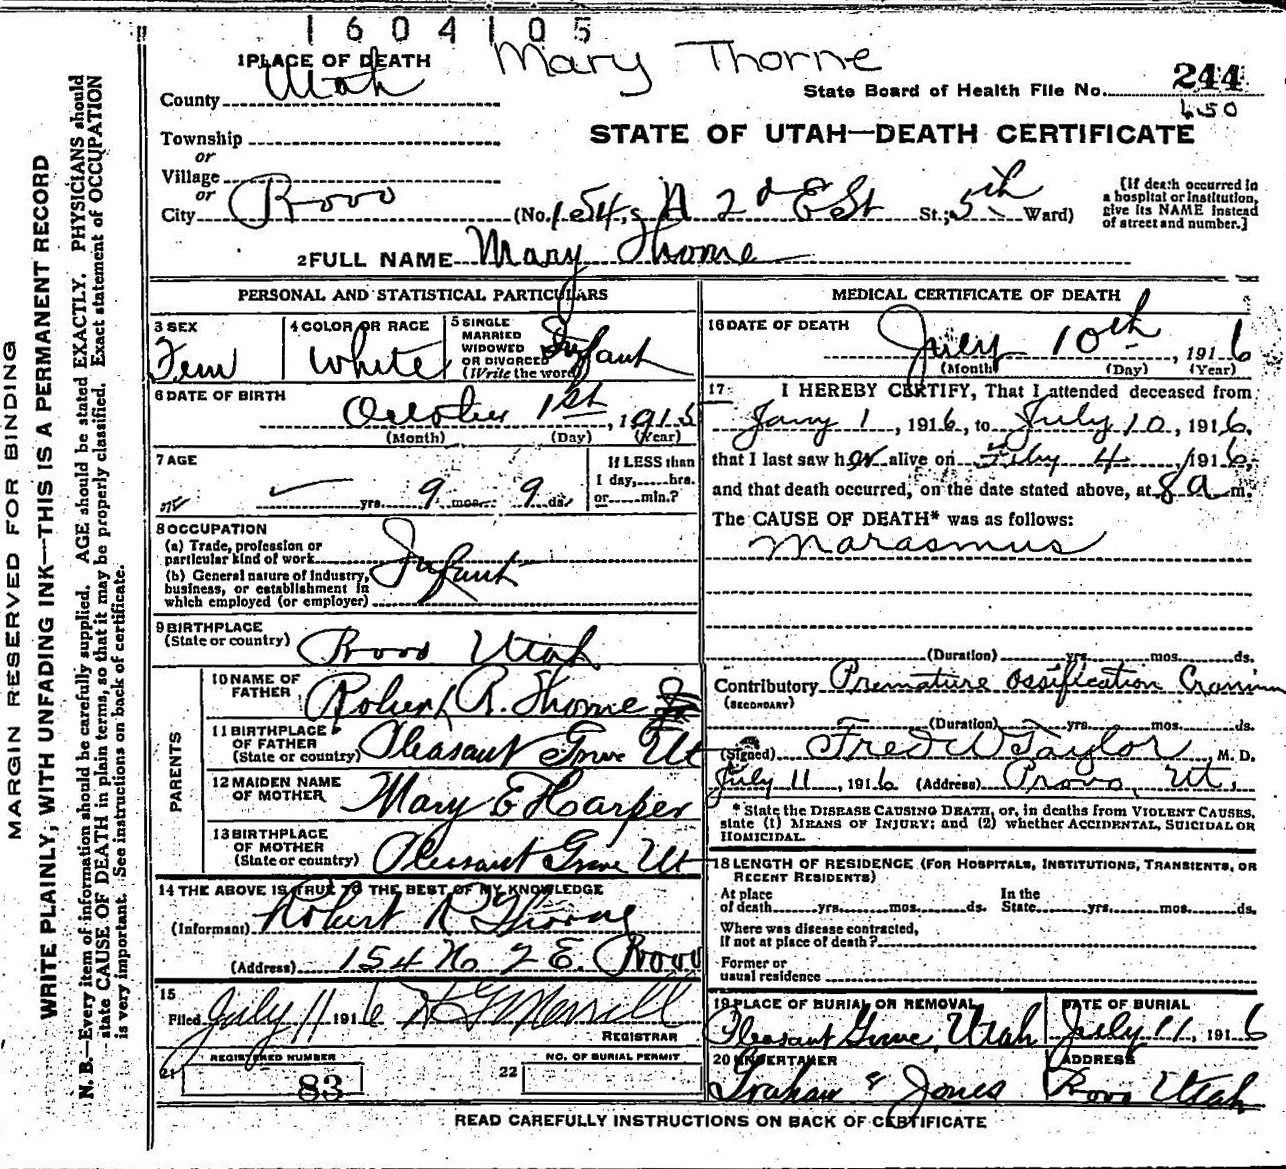 1604105
Mary Thorne
1 PLACE OF DEATH
County Utah
State Board of Health File No. 244
650
Township
or
Village
or
City Provo
STATE OF UTAH—DEATH CERTIFICATE
(No. 154, N 2d E St St.; 5th Ward)
[If death occurred in
a hospital or institution,
give its NAME instead
of street and number.]
2 FULL NAME Mary Thorne
PERSONAL AND STATISTICAL PARTICULARS
3 SEX
Fem
4 COLOR OR RACE
White
5 SINGLE
MARRIED
WIDOWED
OR DIVORCED
(Write the word)
Infant
6 DATE OF BIRTH
October 1st, 1915
(Month) (Day) (Year)
7 AGE
yrs. 9 mos. 9 ds.
If LESS than
1 day, hrs.
or min.?
8 OCCUPATION
(a) Trade, profession or
particular kind of work
(b) General nature of industry,
business, or establishment in
which employed (or employer)
Infant
9 BIRTHPLACE
(State or country)
Provo Utah
PARENTS
10 NAME OF
FATHER
Robert R. Thorne
11 BIRTHPLACE
OF FATHER
(State or country)
Pleasant Grove Ut
12 MAIDEN NAME
OF MOTHER
Mary E Harper
13 BIRTHPLACE
OF MOTHER
(State or country)
Pleasant Grove Ut
14 THE ABOVE IS TRUE TO THE BEST OF MY KNOWLEDGE
(Informant) Robert R Thorne
(Address) 154 No 2 E. Provo
15
Filed July 11 1916 Merrill
REGISTRAR
REGISTERED NUMBER
21 83
NO. OF BURIAL PERMIT
22
MEDICAL CERTIFICATE OF DEATH
16 DATE OF DEATH
July 10th, 1916
(Month) (Day) (Year)
17 I HEREBY CERTIFY, That I attended deceased from
Jany 1, 1916, to July 10, 1916,
that I last saw her alive on 4, 1916,
and that death occurred, on the date stated above, at 8 a m.
The CAUSE OF DEATH* was as follows:
Marasmus
(Duration) yrs. mos. ds.
Contributory Premature Ossification Cranium
(SECONDARY)
(Duration) yrs. mos. ds.
(Signed) Fred W Taylor M. D.
July 11, 1916 (Address) Provo, Ut,
* State the DISEASE CAUSING DEATH, or, in deaths from VIOLENT CAUSES,
state (1) MEANS OF INJURY; and (2) whether ACCIDENTAL, SUICIDAL OR
HOMICIDAL.
18 LENGTH OF RESIDENCE (FOR HOSPITALS, INSTITUTIONS, TRANSIENTS, OR
RECENT RESIDENTS)
At place
of death yrs. mos. ds.
In the
State yrs. mos. ds.
Where was disease contracted,
if not at place of death?
Former or
usual residence
19 PLACE OF BURIAL OR REMOVAL
Pleasant Grove, Utah
DATE OF BURIAL
July 11, 1916
20 UNDERTAKER
Graham & Jones
ADDRESS
Provo Utah
READ CAREFULLY INSTRUCTIONS ON BACK OF CERTIFICATE
MARGIN RESERVED FOR BINDING
WRITE PLAINLY, WITH UNFADING INK—THIS IS A PERMANENT RECORD
N. B.—Every item of information should be carefully supplied. AGE should be stated EXACTLY. PHYSICIANS should
state CAUSE OF DEATH in plain terms, so that it may be properly classified. Exact statement of OCCUPATION
is very important. See instructions on back of certificate.